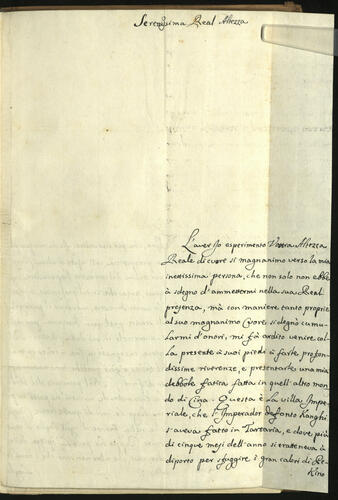 Serenissima Real Altezza
L'aver Io esperimento Vostra Altezza
Reale di cuore si magnanimo verso la mia
inettissima persona, che non solo non ebbe
à sdegno d'ammettermi nella sua Real
presenza, mà con maniere tanto proprie
al suo magnanimo Cuore si degnò cumu-
larmi d'onori, mi fà ardito venire col-
la presente à suoi piedi à farle profon-
dissime riverenze, e presentarle una mia
debbole fatica fatta in quell'altro mon-
do di Cina. Questa è la villa Impe-
riale, che l'Imperador defonto Kanghi
s'aveva fatto in Tartaria, e dove più
di cinque mesi dell'anno si tratteneva à
diporto per sfuggire i gran calori di Pe-
Kino